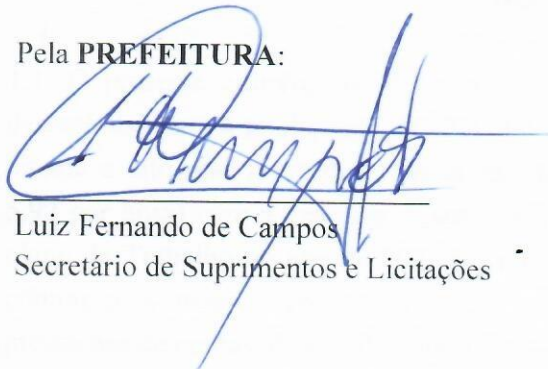 Pela PREFEITURA:
Luiz Fernando de Campos
Secretário de Suprimentos e Licitações